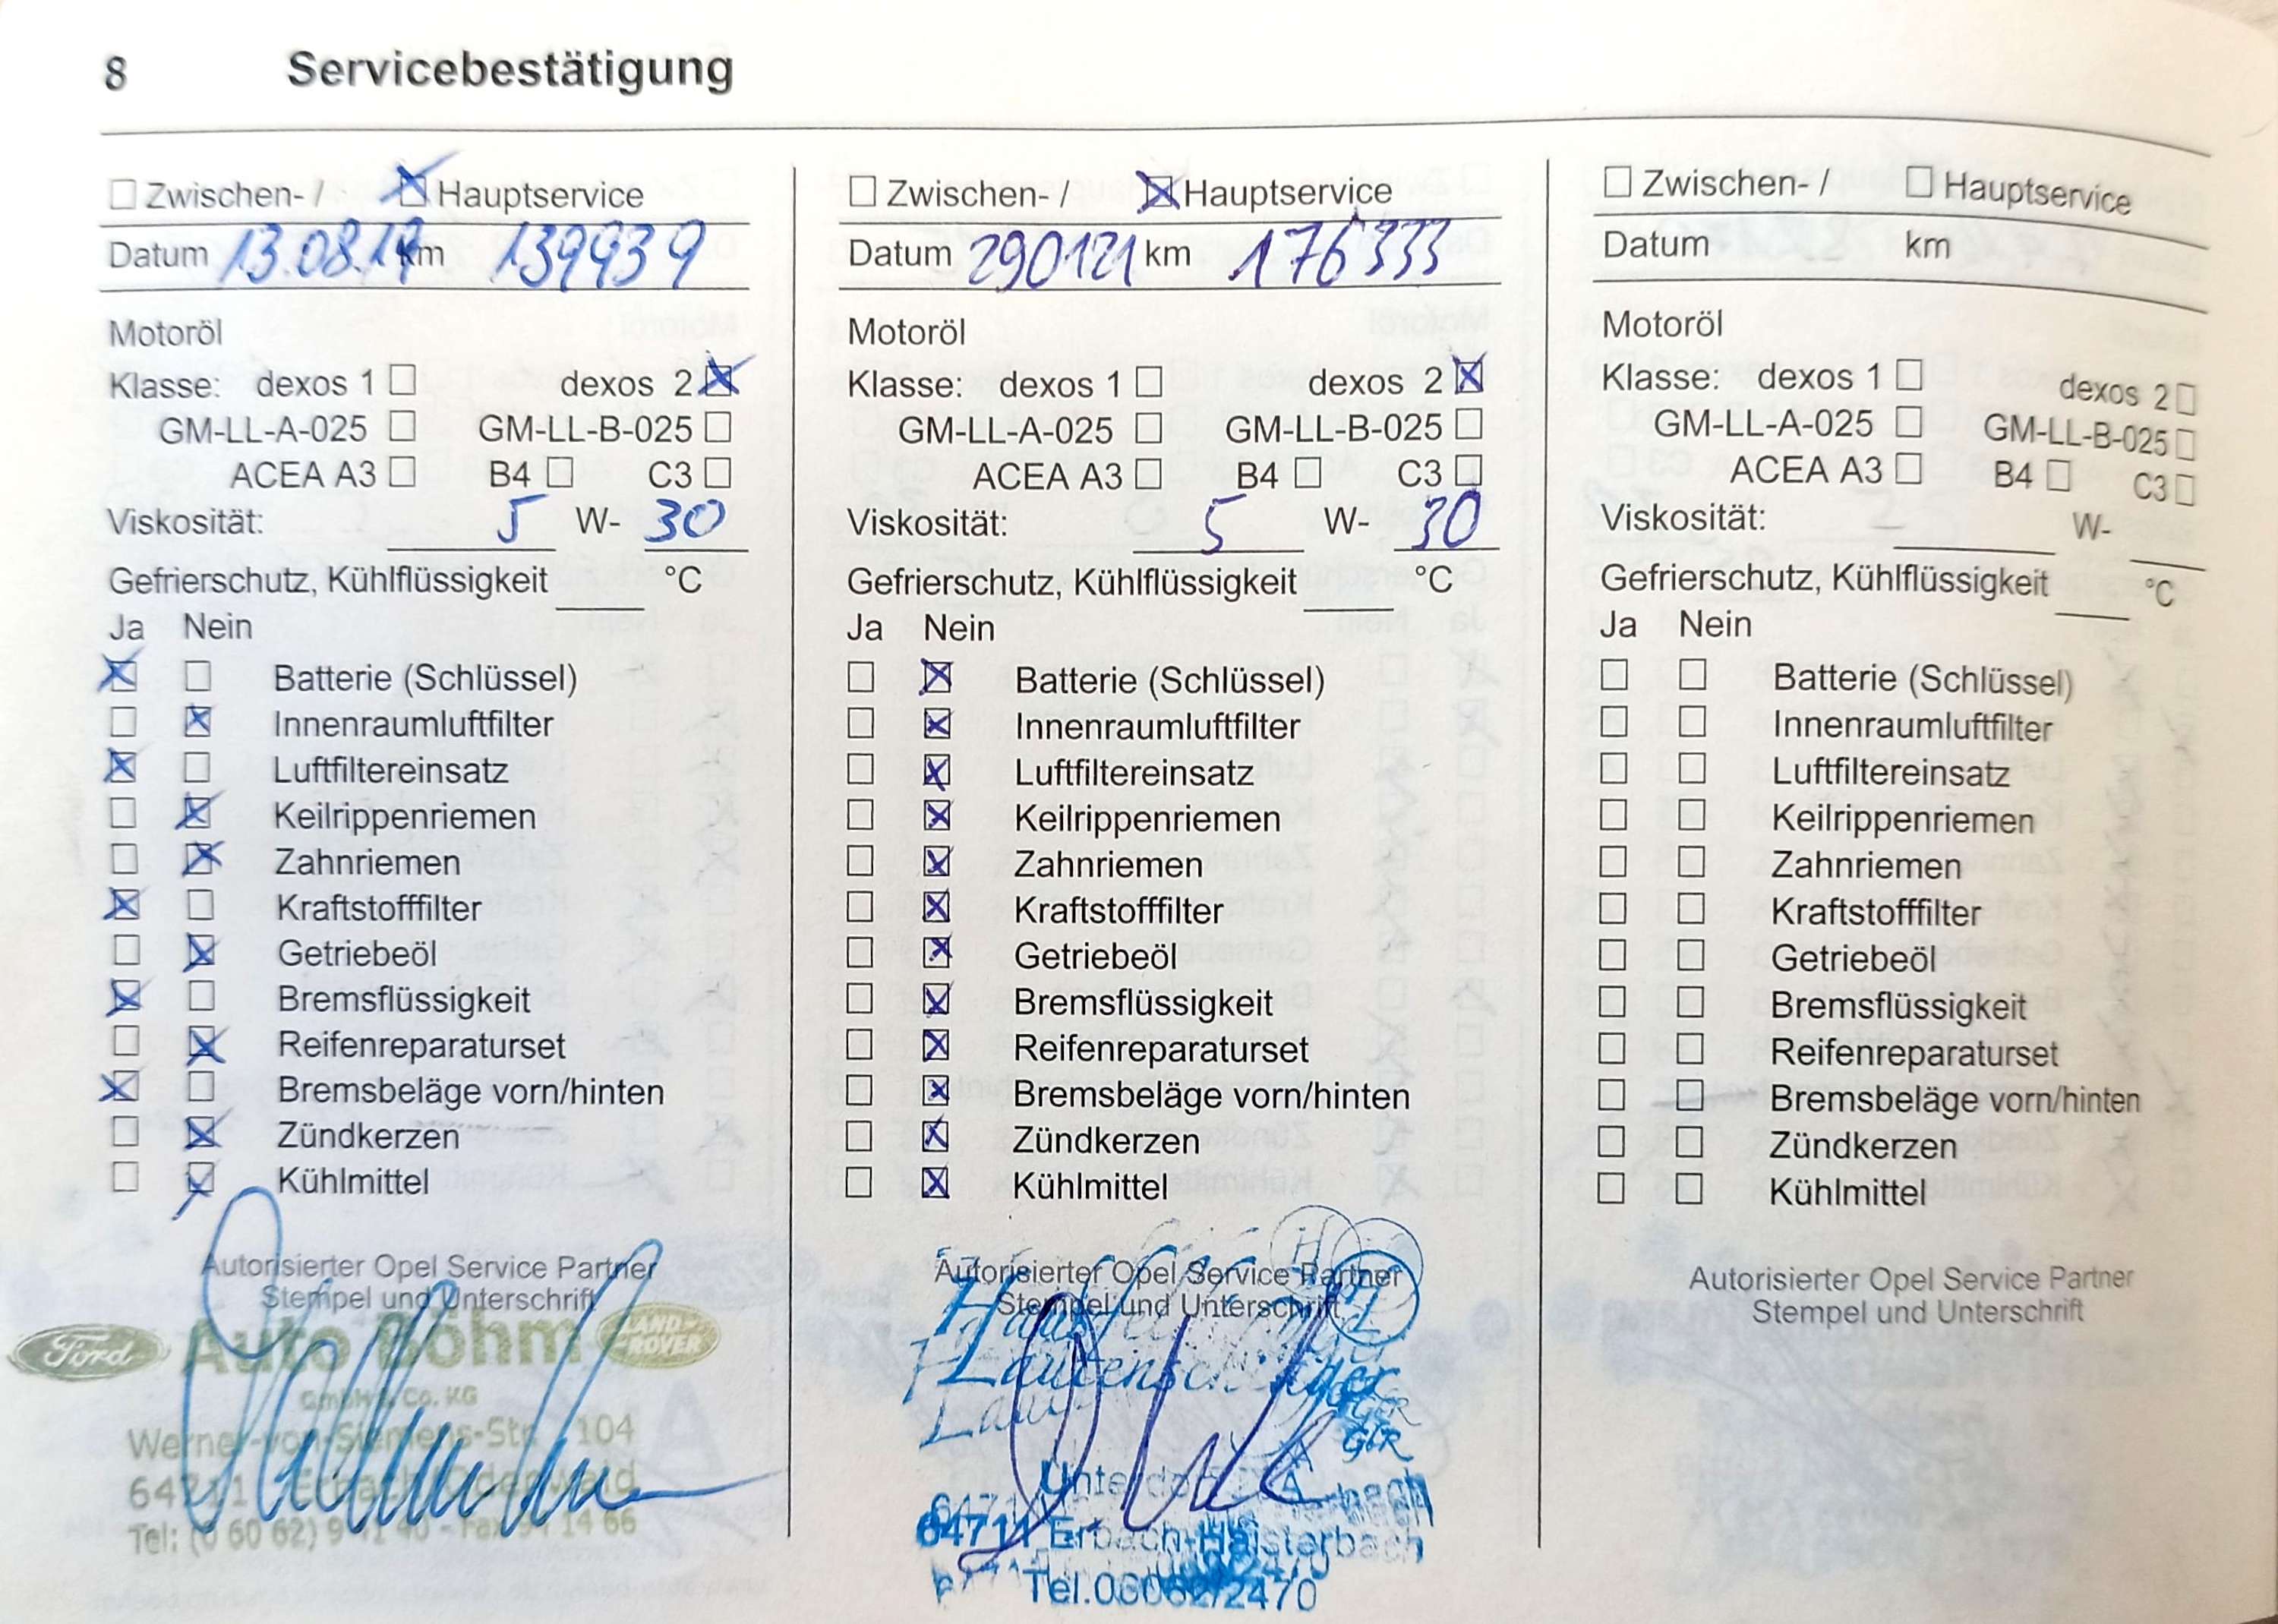 8 Servicebestätigung
☐ Zwischen- / ☒ Hauptservice
Datum 13.08.19 km 139939
Motoröl
Klasse: dexos 1 ☐ dexos 2 ☒
GM-LL-A-025 ☐ GM-LL-B-025 ☐
ACEA A3 ☐ B4 ☐ C3 ☐
Viskosität: 5 W- 30
Gefrierschutz, Kühlflüssigkeit °C
Ja Nein
☒ ☐ Batterie (Schlüssel)
☐ ☒ Innenraumluftfilter
☒ ☐ Luftfiltereinsatz
☐ ☒ Keilrippenriemen
☐ ☒ Zahnriemen
☒ ☐ Kraftstofffilter
☐ ☒ Getriebeöl
☒ ☐ Bremsflüssigkeit
☐ ☒ Reifenreparaturset
☒ ☐ Bremsbeläge vorn/hinten
☐ ☒ Zündkerzen
☐ ☒ Kühlmittel
Autorisierter Opel Service Partner
Stempel und Unterschrift
Ford Auto Böhm LAND-ROVER
GmbH & Co. KG
Werner-von-Siemens-Str. 104
64711 Erbach/Odenwald
Tel: (0 60 62) 94 - Fax 94 14 66
☐ Zwischen- / ☒ Hauptservice
Datum 290121 km 176333
Motoröl
Klasse: dexos 1 ☐ dexos 2 ☒
GM-LL-A-025 ☐ GM-LL-B-025 ☐
ACEA A3 ☐ B4 ☐ C3 ☐
Viskosität: 5 W- 30
Gefrierschutz, Kühlflüssigkeit °C
Ja Nein
☐ ☒ Batterie (Schlüssel)
☐ ☒ Innenraumluftfilter
☐ ☒ Luftfiltereinsatz
☐ ☒ Keilrippenriemen
☐ ☒ Zahnriemen
☐ ☒ Kraftstofffilter
☐ ☒ Getriebeöl
☐ ☒ Bremsflüssigkeit
☐ ☒ Reifenreparaturset
☐ ☒ Bremsbeläge vorn/hinten
☐ ☒ Zündkerzen
☐ ☒ Kühlmittel
Autorisierter Opel Service Partner
Stempel und Unterschrift
Lautenschläger
GbR
64711 Erbach-Haisterbach
Tel.06062/2470
☐ Zwischen- / ☐ Hauptservice
Datum km
Motoröl
Klasse: dexos 1 ☐ dexos 2 ☐
GM-LL-A-025 ☐ GM-LL-B-025 ☐
ACEA A3 ☐ B4 ☐ C3 ☐
Viskosität: W-
Gefrierschutz, Kühlflüssigkeit °C
Ja Nein
☐ ☐ Batterie (Schlüssel)
☐ ☐ Innenraumluftfilter
☐ ☐ Luftfiltereinsatz
☐ ☐ Keilrippenriemen
☐ ☐ Zahnriemen
☐ ☐ Kraftstofffilter
☐ ☐ Getriebeöl
☐ ☐ Bremsflüssigkeit
☐ ☐ Reifenreparaturset
☐ ☐ Bremsbeläge vorn/hinten
☐ ☐ Zündkerzen
☐ ☐ Kühlmittel
Autorisierter Opel Service Partner
Stempel und Unterschrift